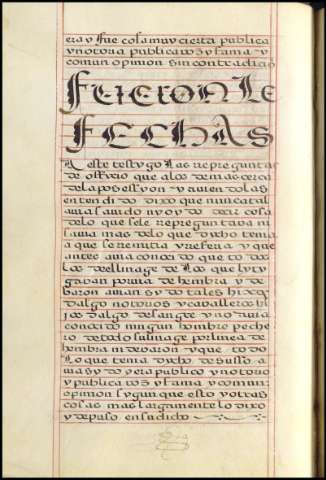 era y fue cosa muy cierta publica
y notoria publica boz y fama y
comun opinion sin contradicion
FUERONLE
FECHAS
A este testygo las repreguntas
de offiçio que a los demas çerca
de la posessyon y avien dolas
entendido dixo que nunca tal
avia savido ny oydo dezir cosa
de lo que se le repreguntava ni
savia mas de lo que dicho tenia
a que se remitia y referia y que
antes avia conosçido que todos
los del linage de los que lyty
gaban por via de hembra y de
baron avian sydo tales hijos
dalgo notorios y cavalleros hi
jos dalgo de sangre y no avia
conosçido ningun hombre peche
ro de todo su linage por linea de
hembra ni de varon y que todo
lo que tenia dicho de susso a
via sydo y era publico y notorio
y publica boz y fama y comun
opinion sygun que esto y otras
cosas mas largamente lo dixo
y depuso en su dicho